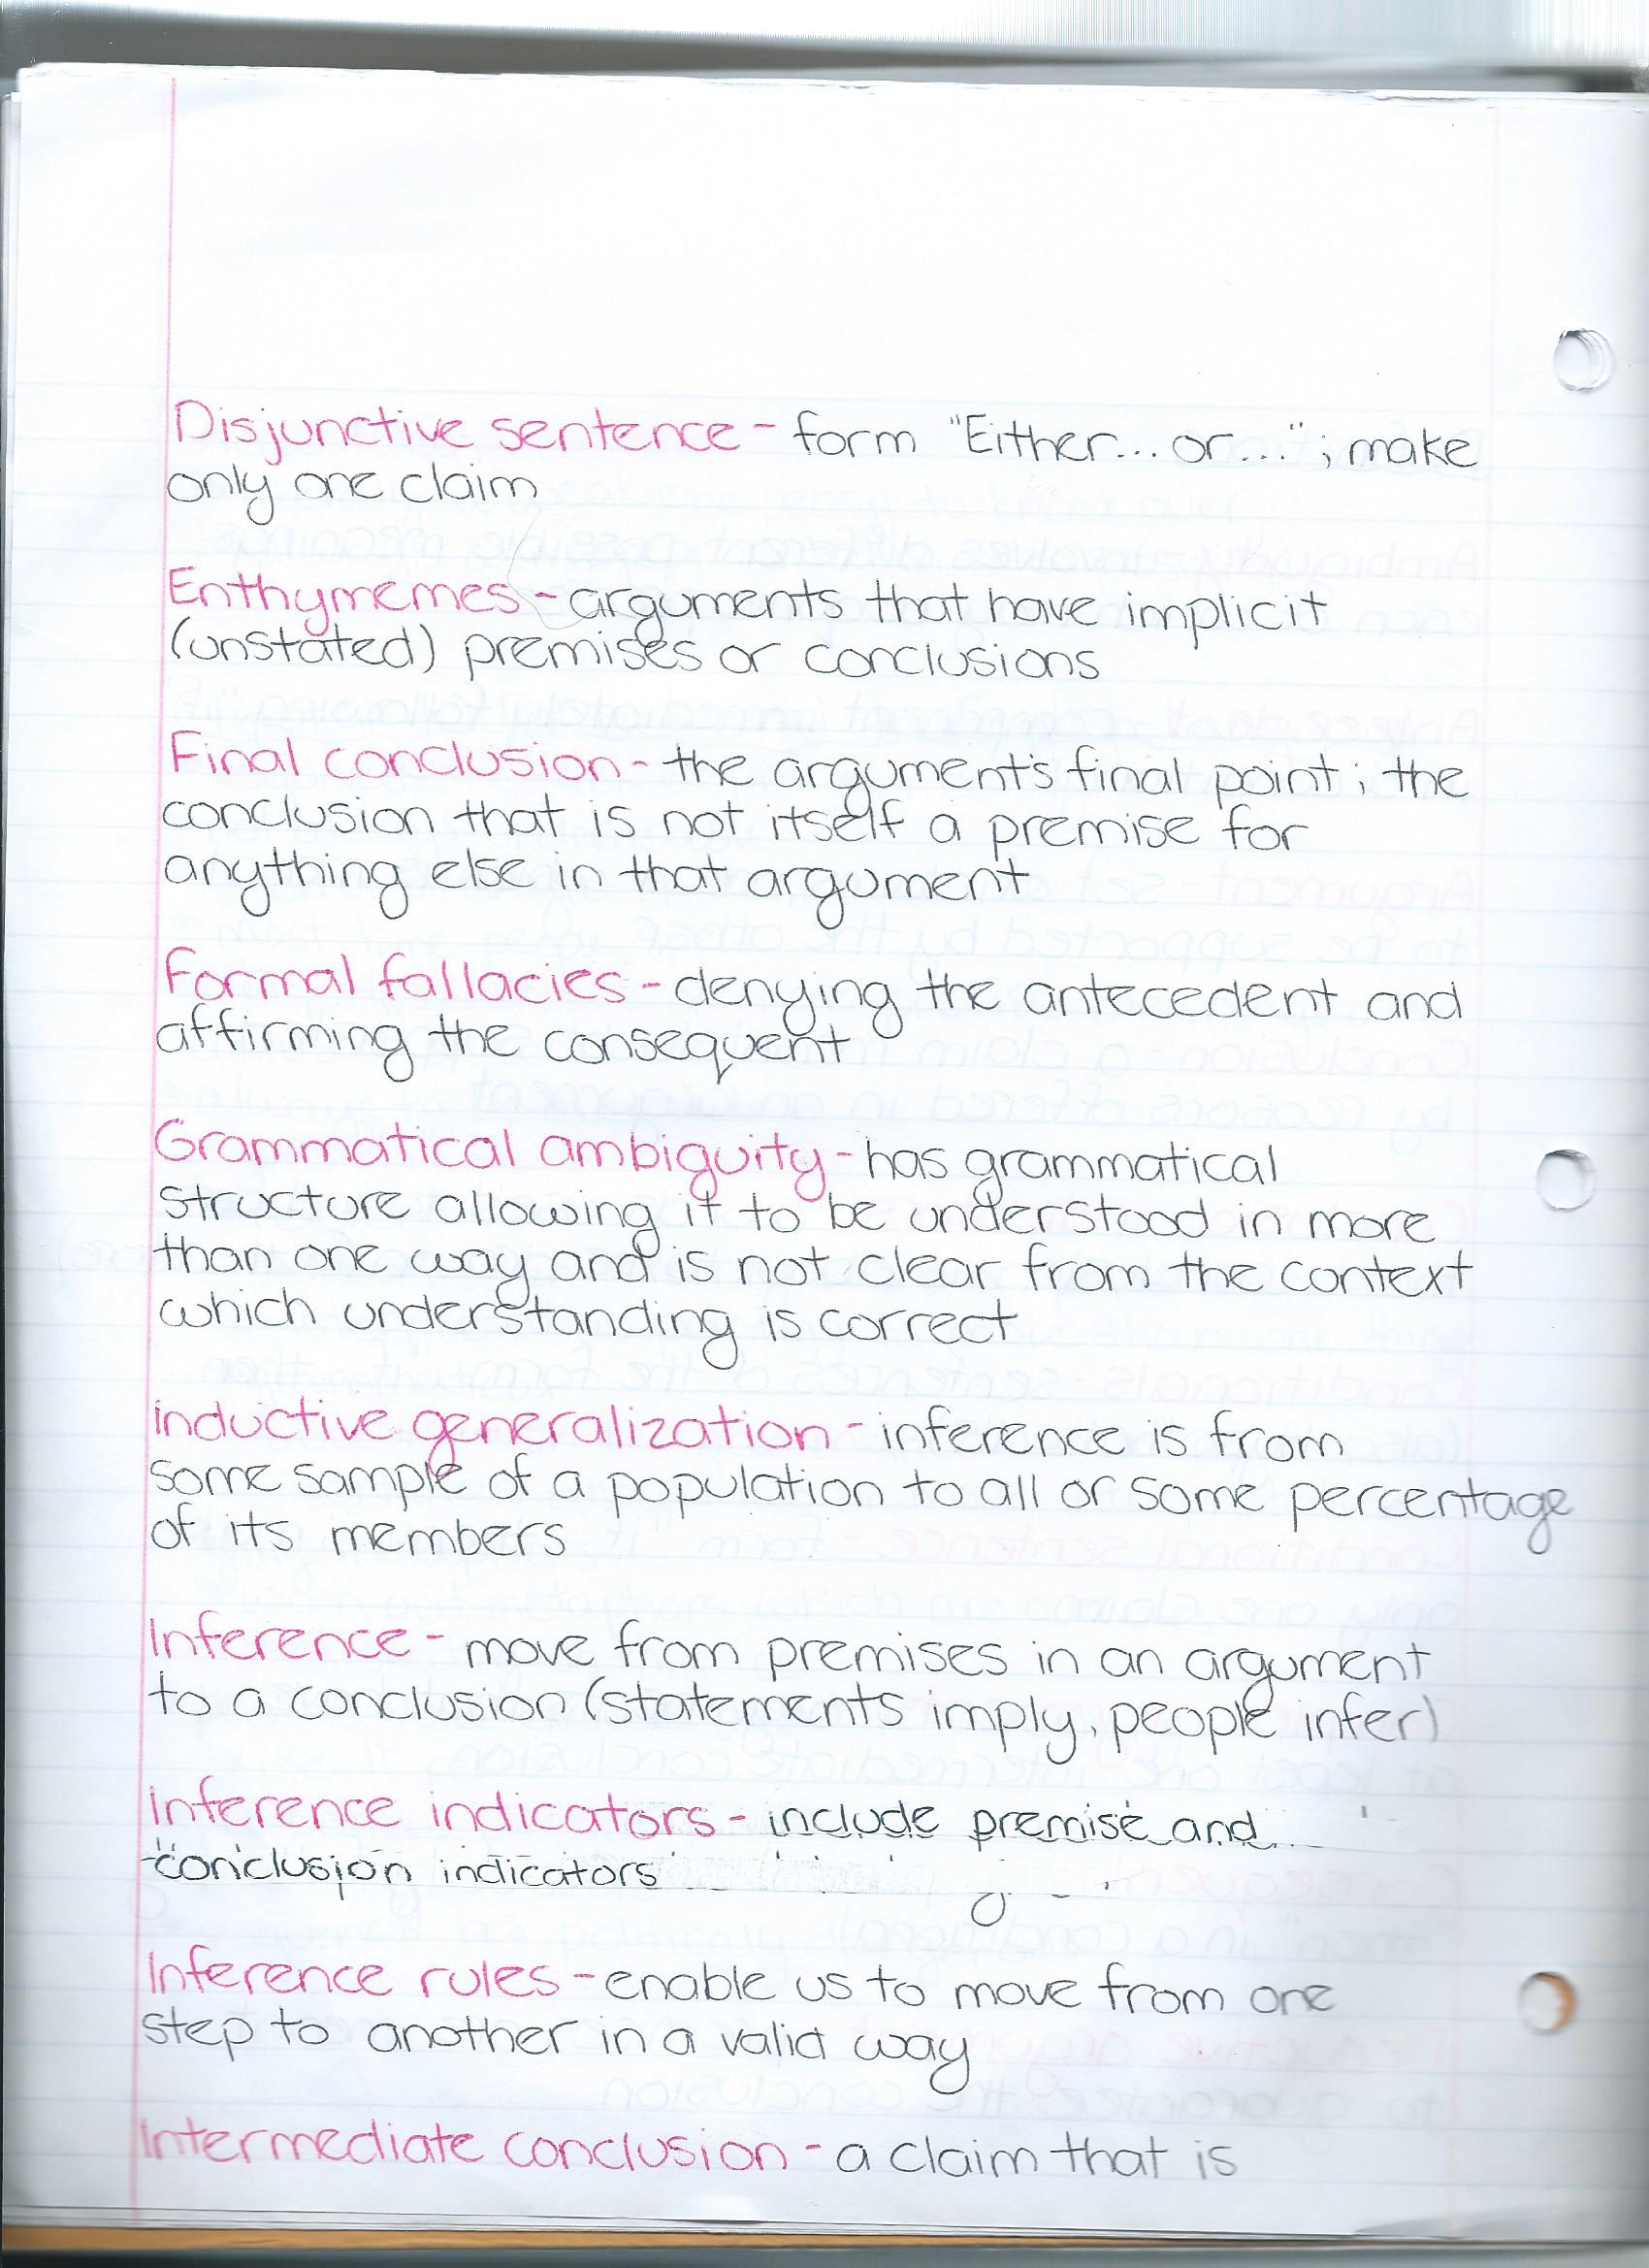 Disjunctive sentence - form "Either... or..." ; make
only one claim
Enthymemes - arguments that have implicit
(unstated) premises or conclusions
Final conclusion - the argument's final point ; the
conclusion that is not itself a premise for
anything else in that argument
Formal fallacies - denying the antecedent and
affirming the consequent
Grammatical ambiguity - has grammatical
structure allowing it to be understood in more
than one way and is not clear from the context
which understanding is correct
Inductive generalization - inference is from
some sample of a population to all or some percentage
of its members
Inference - move from premises in an argument
to a conclusion (statements imply, people infer)
Inference indicators - include premise and
conclusion indicators
Inference rules - enable us to move from one
step to another in a valid way
Intermediate conclusion - a claim that is